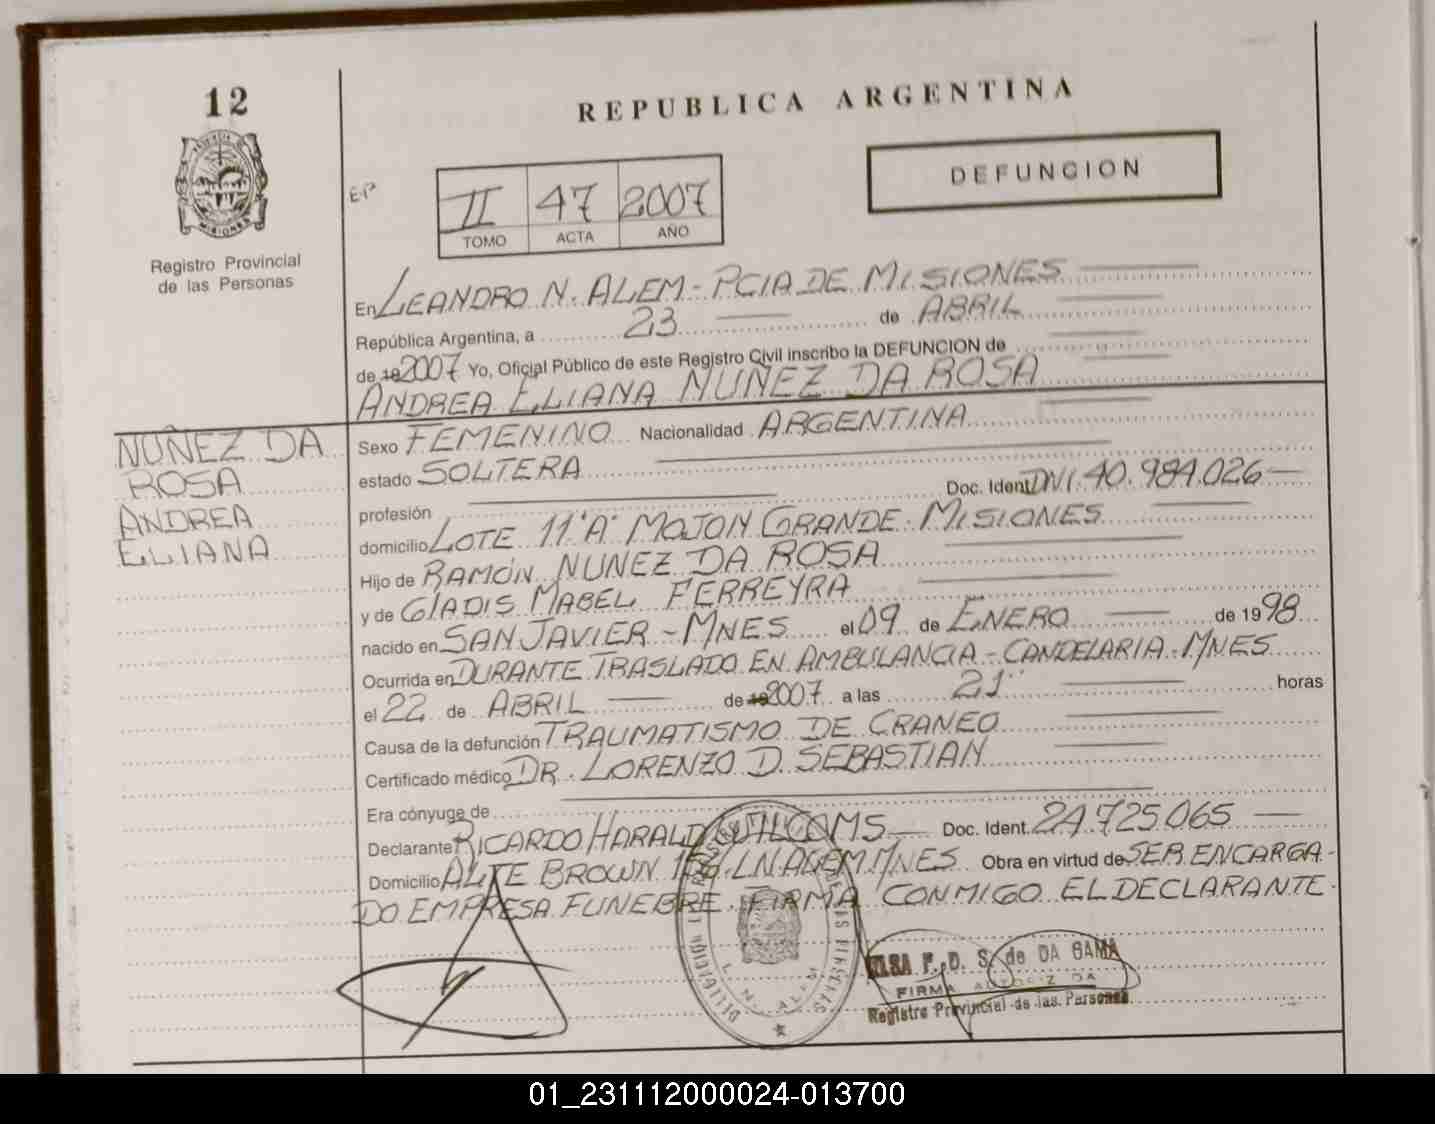 12
REPUBLICA ARGENTINA
DEFUNCION
E.P
II 47 2007
TOMO ACTA AÑO
Registro Provincial
de las Personas
En LEANDRO N. ALEM - PCIA DE MISIONES
República Argentina, a 23 de ABRIL
de 19 2007 Yo, Oficial Público de este Registro Civil inscribo la DEFUNCION de
ANDREA ELIANA NUÑEZ DA ROSA
NUÑEZ DA
ROSA
ANDREA
ELIANA
Sexo FEMENINO Nacionalidad ARGENTINA
estado SOLTERA
profesión Doc. Ident DNI. 40.984.026
domicilio LOTE 11 "A" MOJON GRANDE. MISIONES
Hijo de RAMÓN NUNEZ DA ROSA
y de GLADIS MABEL FERREYRA
nacido en SAN JAVIER - MNES el 09 de ENERO de 1998
Ocurrida en DURANTE TRASLADO EN AMBULANCIA - CANDELARIA - MNES
el 22 de ABRIL de 19 2007 a las 21 horas
Causa de la defunción TRAUMATISMO DE CRANEO
Certificado médico DR. LORENZO D. SEBASTIAN
Era cónyuge de
Declarante RICARDO HARALD Doc. Ident. 24.725.065
Domicilio ALTE BROWN LN ALEM MNES Obra en virtud de SER ENCARGA-
DO EMPRESA FUNEBRE. FIRMA CONMIGO EL DECLARANTE.
L. N. ALEM
ELSA F. D. S. de DA GAMA
FIRMA AUTORIZADA
Registro Provincial de las Personas
01_231112000024-013700